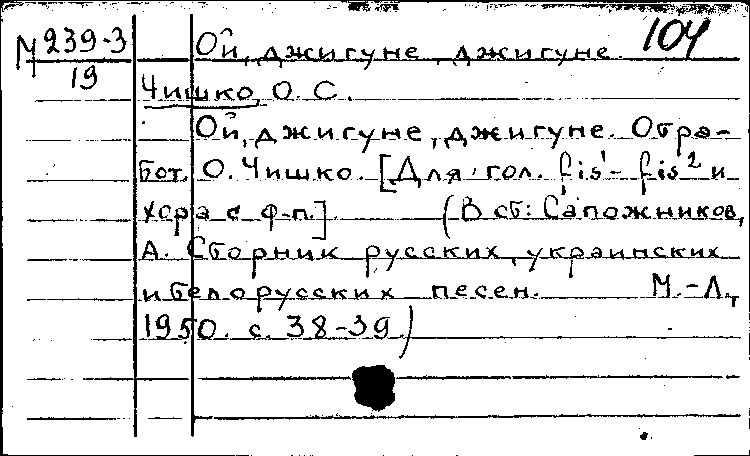 М 239-3 Ой, джигуне, джигуне. 104
19
Чишко, О. С.
Ой, джигуне, джигуне. Обра-
бот. О. Чишко. [Для гол. fis¹- fis² и
хора с ф-п.] (В сб: Сапожников,
А. Сборник русских, украинских
и белорусских песен. М.-Л.,
1950. с. 38-39.)